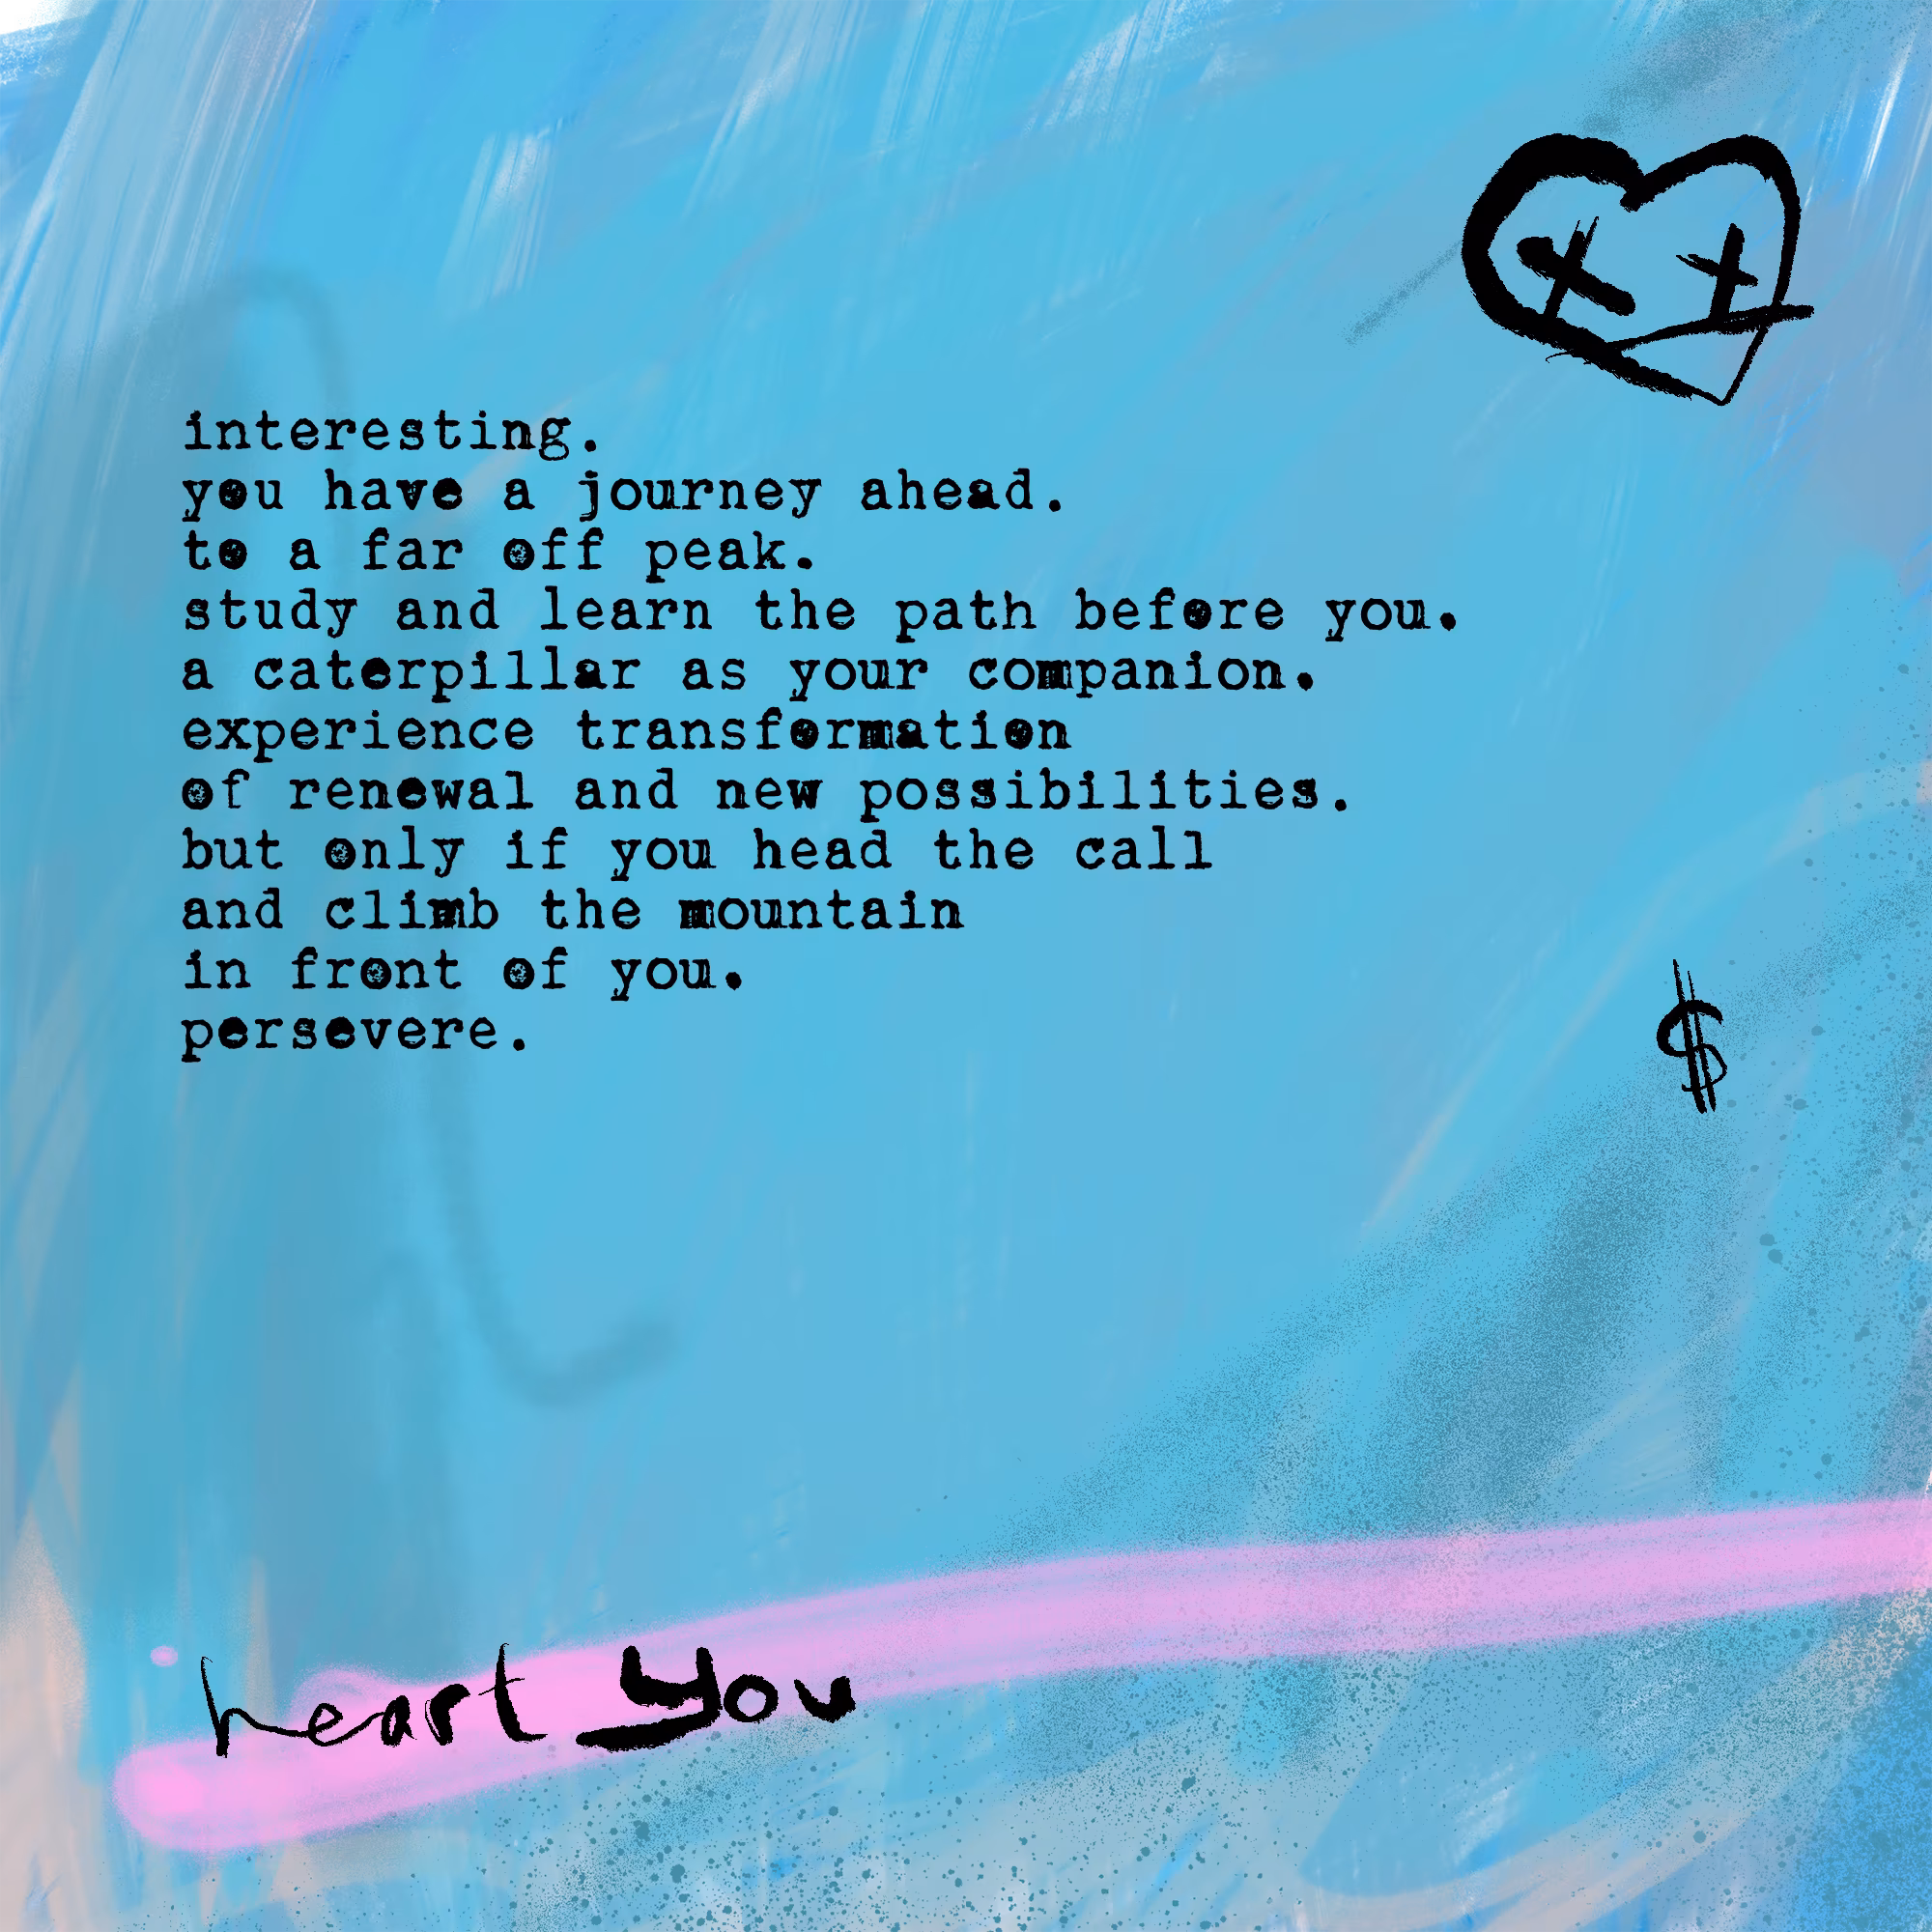 interesting.
you have a journey ahead.
to a far off peak.
study and learn the path before you.
a caterpillar as your companion.
experience transformation
of renewal and new possibilities.
but only if you head the call
and climb the mountain
in front of you.
persevere.
$
heart You